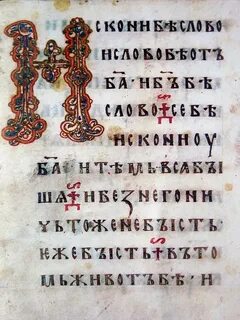 ИСКОНИБѢСЛОВО
ИСЛОВОБѢОТЪ
Б҃А·ИБ҃ЪБѢ
СЛОВО СЕБѢ
ИСКОНИОУ
Б҃А·ИТѢМЬВСАБЪІ
ШѦ ИБЕЗНЕГОНИ
ЧЬТОЖЕНЕБЪІСТЬ
ЕЖЕБЪІСТЬ ВЪТО
МЬЖИВОТЪБѢ·И